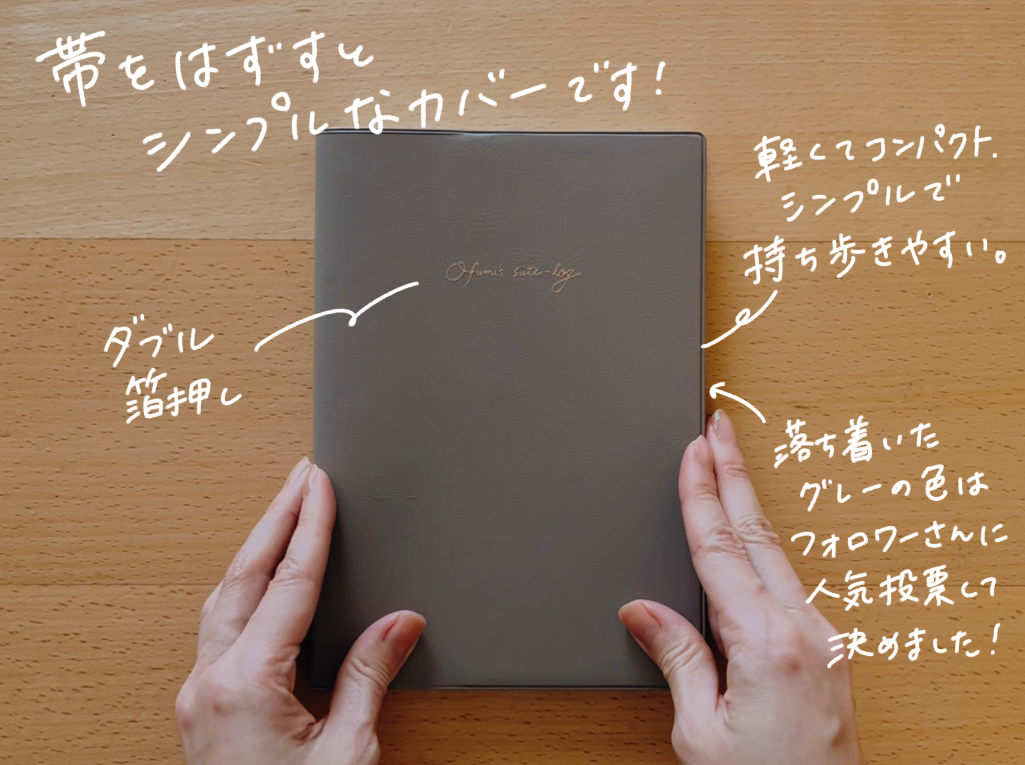 帯をはずすと
シンプルなカバーです!
軽くてコンパクト.
シンプルで
持ち歩きやすい。
Ofumi's sute-log
ダブル
箔押し
落ち着いた
グレーの色は
フォロワーさんに
人気投票して
決めました!